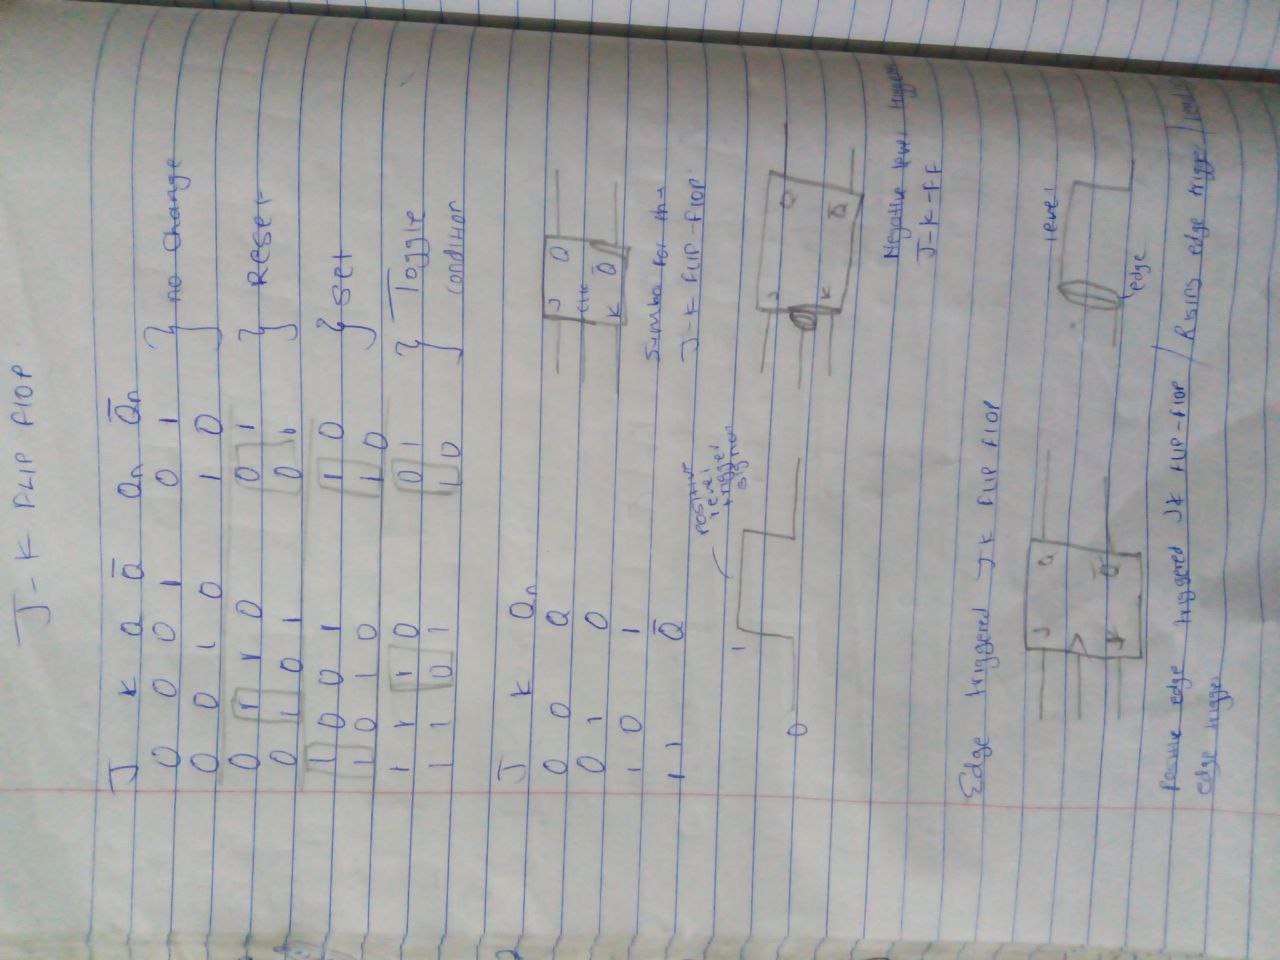 J-K FLIP FLOP
J K Q Q̅ Qn Q̅n
0 0 0 1 0 1 } no Change
0 0 1 0 1 0
0 1 1 0 0 1 } Reset
0 1 0 1 0 1
1 0 0 1 1 0 } Set
1 0 1 0 1 0
1 1 1 0 0 1 } Toggle
1 1 0 1 1 0 condition
J K Qn
0 0 Q
0 1 0
1 0 1
1 1 Q̅
J Q
CLK
K Q̅
Symbo for the
J-K FLIP-FLOP
positive
level
trigger
signal
1
0
J Q
K Q̅
Negative level
J-K-FF
Edge triggered JK FLIP FLOP
J Q
K Q̅
level
edge
Positive edge triggered JK FLIP-FLOP / Rising edge trigger /
edge trigger